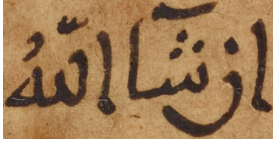 ان شآ اللهُ